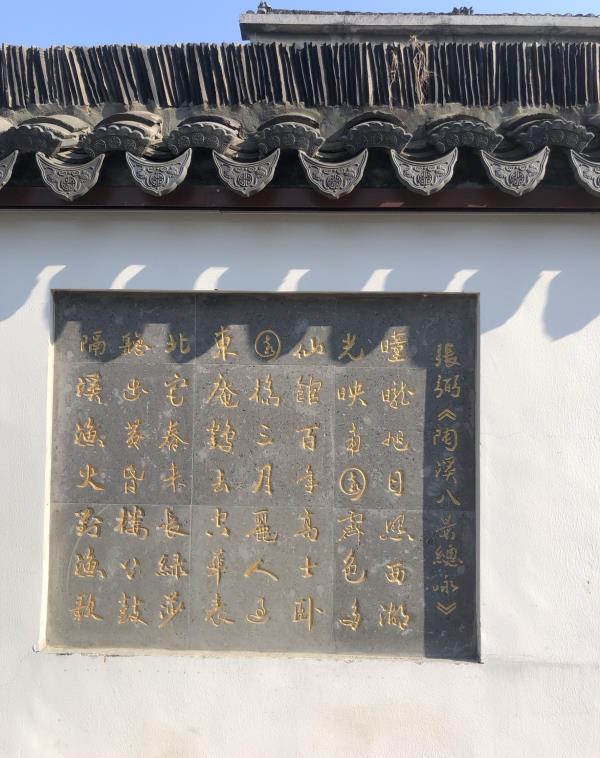 張弼《陶溪八景總咏》
曈曨旭日照西湖
光映南園霽色多
仙館百年高士卧
園橋三月麗人過
東庵鶴去空華表
北宅春來長緑莎
聽出黃昏樓上鼓
隔溪漁火對漁歌